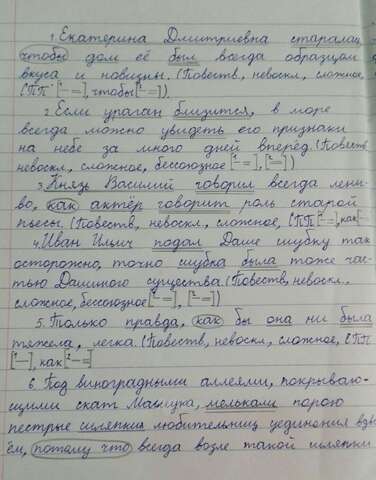 1. Екатерина Дмитриевна старалас
чтобы дом её был всегда образцом
вкуса и новизны. (Повеств, невоскл, сложное,
СПП [- =], чтобы [- =]).
2. Если ураган близится, в море
всегда можно увидеть его признаки
на небе за много дней вперёд. (Повеств
невоскл, сложное, бессоюзное [1- =], [2- =])
3. Князь Василий говорил всегда лени-
во, как актёр говорит роль старой
пьесы. (Повеств, невоскл, сложное, СПП [- =], как [-
4. Иван Ильич подал Даше шубку так
осторожно, точно шубка была тоже час-
тью Дашиного существа. (Повеств, невоскл,
сложное, бессоюзное [1- =], [2- =])
5. Только правда, как бы она ни была
тяжела, легка. (Повеств, невоскл, сложное, СПП
[1-], как [2- =]
6. Под виноградными аллеями, покрываю-
щими скат Машука, мелькали порою
пестрые шляпки любительниц уединения вдв
ём, потому что всегда возле такой шляпки